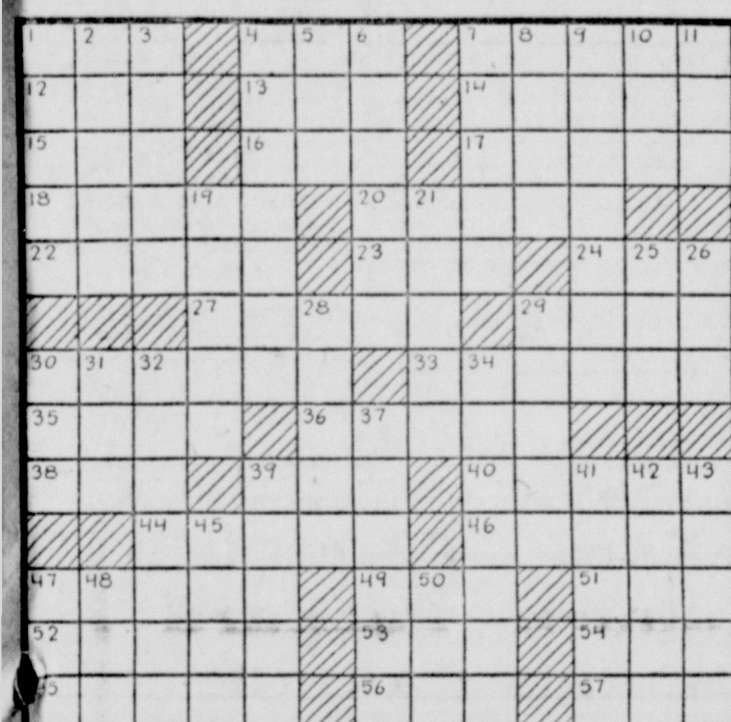 1 2 3 4 5 6 7 8 9 10 11
12 13 14
15 16 17
18 19 20 21
22 23 24 25 26
27 28 29
30 31 32 33 34
35 36 37
38 39 40 41 42 43
44 45 46
47 48 49 50 51
52 53 54
55 56 57